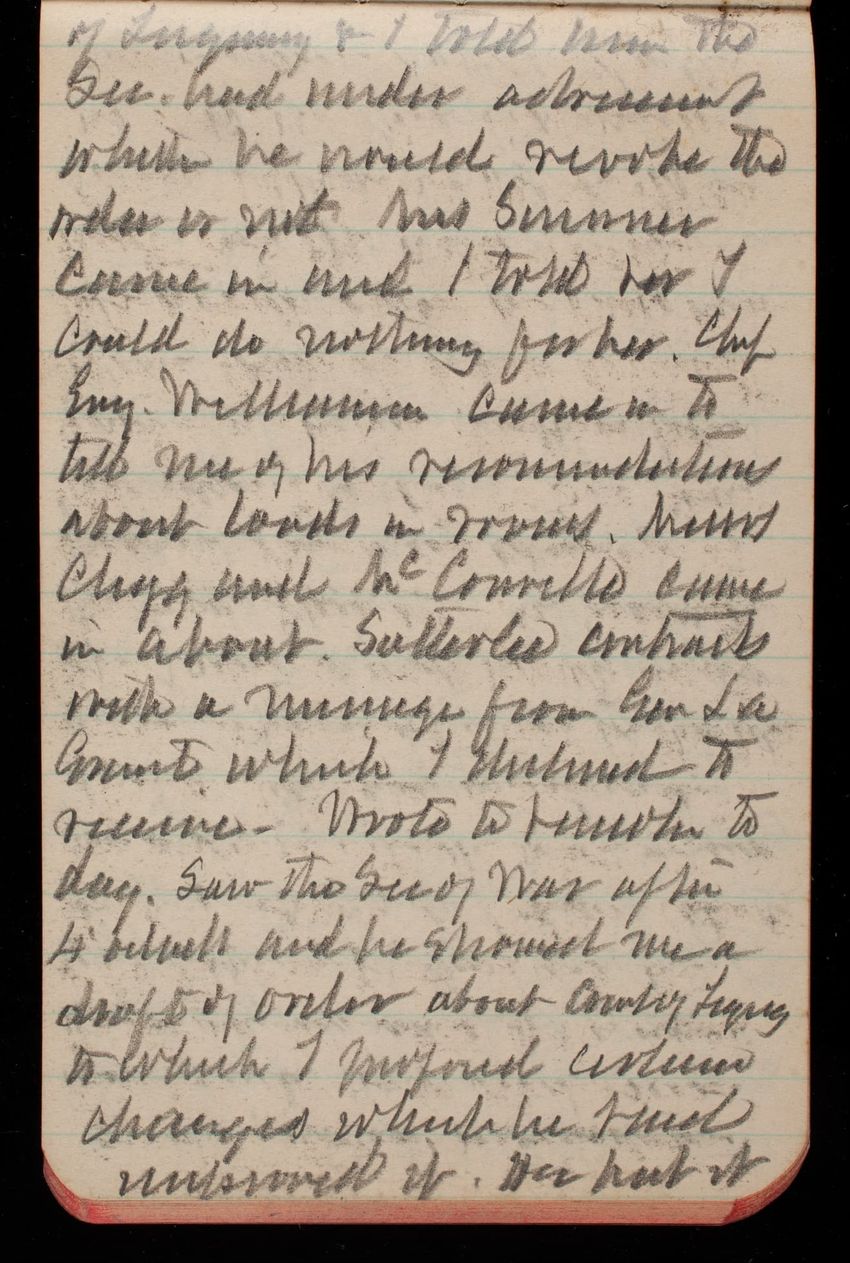 of Inquiry & I told him the
Sec. had under advisement
whether he would revoke the
order or not Mrs Sumner
Came in and I told her I
Could do nothing for her. Chf
Eng. Williamson came in to
tell me of his recommendations
about loads in rooms. Messrs
Clegg and McConville came
in about. Satterlee contracts
with a message from Gen La
Grant which I declined to
receive - Wrote to to
day. Saw the Sec of War after
4 oclock and he showed me a
draft of order about Court of Inquiry
to which I proposed certain
changes which he said
improved it. He put it